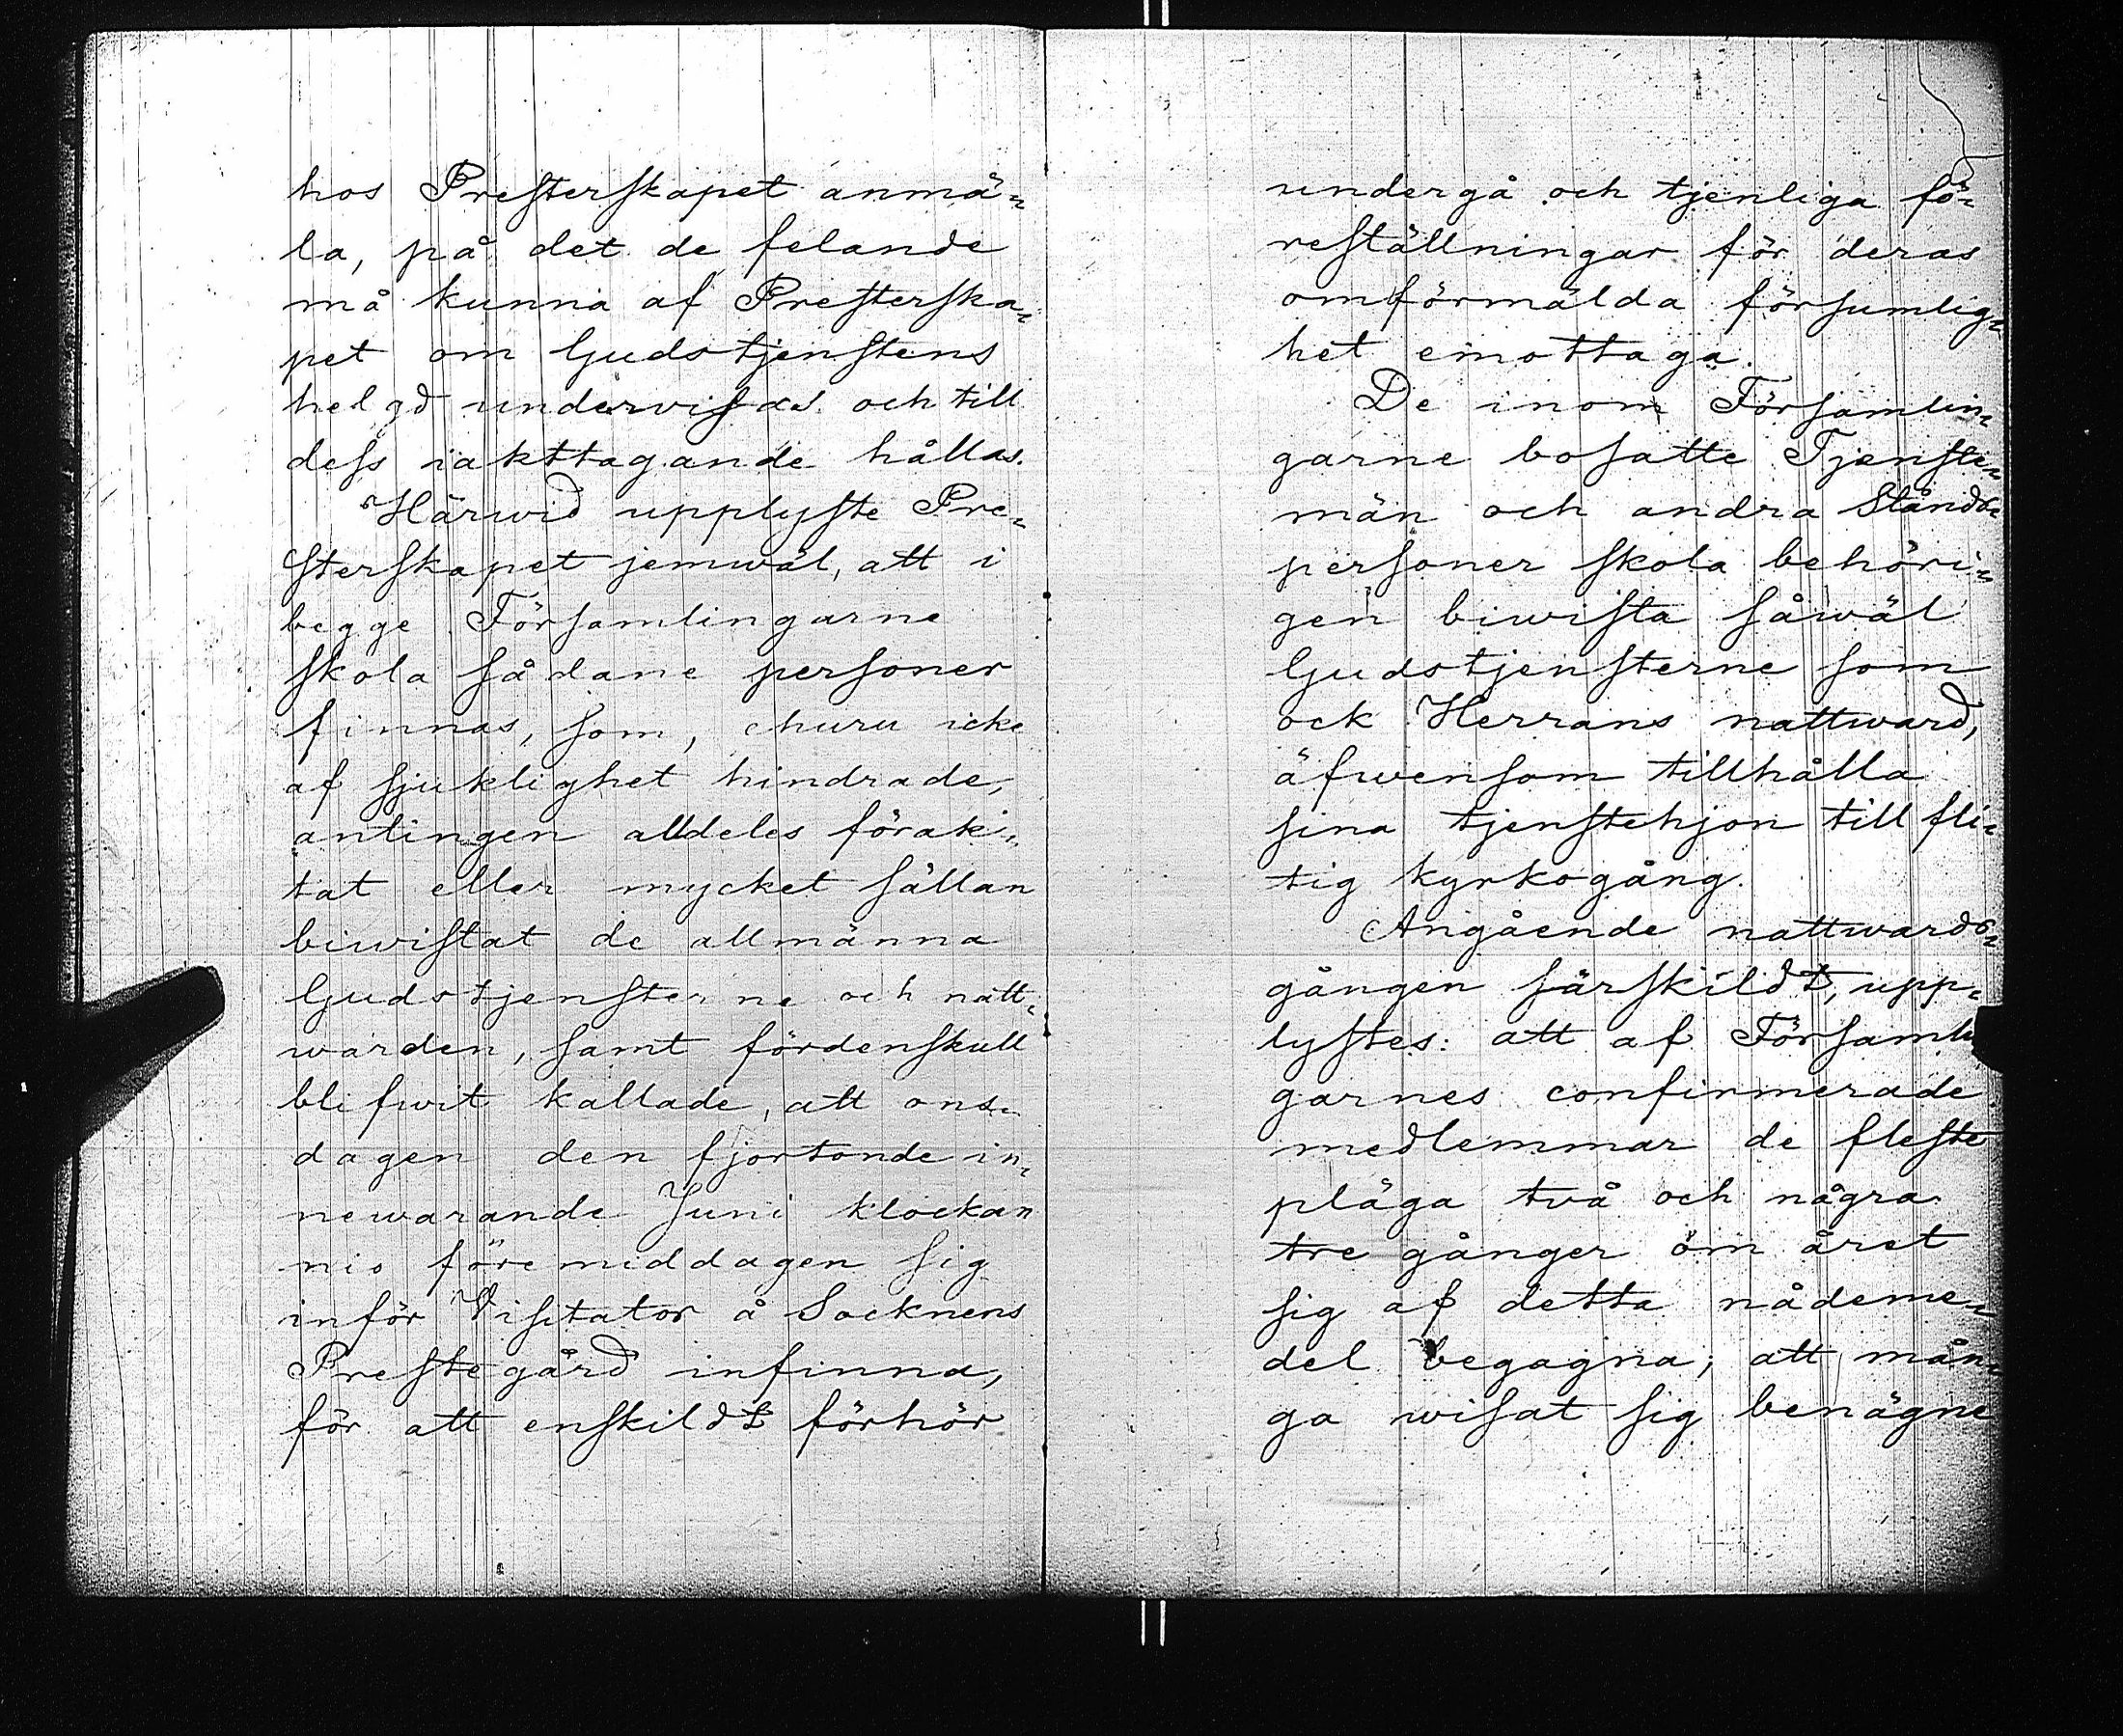 hos Presterskapet anmä-
la, på det de felande
må kunna af Presterska-
pet om Gudstjenstens
helgd undervisas och till
dess iakttagande hållas.
Härwid upplyste Pre-
sterskapet jemwäl, att i
begge Församlingarne
skola sådane personer
finnas, som, ehuru icke
af sjuklighet hindrade,
antingen alldeles förak-
tat eller mycket sällan
biwistat de allmänna
Gudstjensterne och natt-
warden, samt fördenskull
blifwit kallade, att ons-
dagen den fjortonde in-
newarande Juni klockan
nio föremiddagen sig
inför Visitator å Socknens
Prestegård infinna,
för att enskildt förhör
undergå och tjenliga fö-
reställningar för deras
omförmälda försumlig-
het emottaga.
De inom Församlin-
garne bosatte Tjenste-
män och andra Stånds-
personer skola behöri-
gen biwista såwäl
Gudstjensterne som
ock Herrans nattward,
äfwensom tillhålla
sina tjenstehjon till fli-
tig kyrkogång.
Angående nattwards-
gången särskildt, upp-
lystes: att af Församli
garnes confirmerade
medlemmar de fleste
pläga två och några
tre gånger om året
sig af detta nådeme-
del begagna; att mån-
ga wisat sig benägne